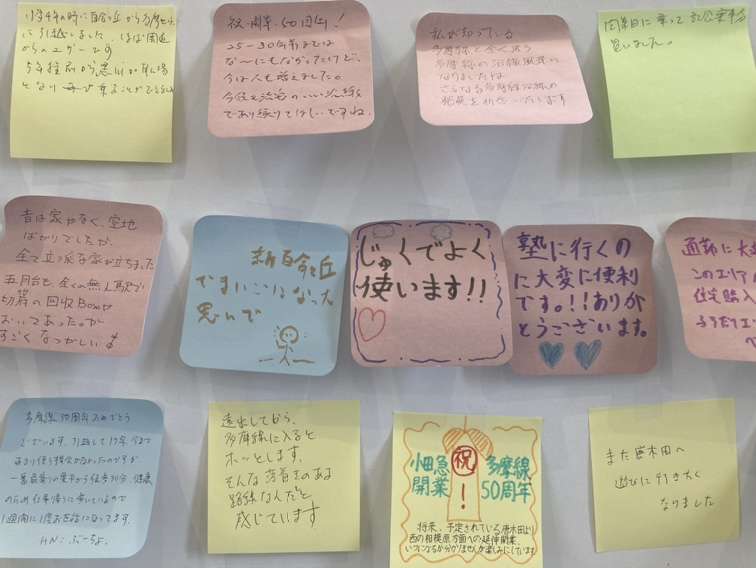 祝・開業・50周年!
25〜30年前までは
な〜にもなかったけど、
今は人も増えました。
であり続けてほしいですね。
私が知っている
多摩線と全く違う
多摩線の沿線風景に
なりましたね
さらなる多摩線沿線の
発展を
開業日に乗って記念
思いました。
昔は家が少なく、空地
ばかりでしたが、
全て立派な家が立ちました
五月台も全くの無人駅で
切符の回収Boxが
おいてあったのが
すごくなつかしいです
新百合ヶ丘
でまいごになった
思いで
じゅくでよく
使います!!
塾に行くの
に大変に便利
です。!!ありが
とうございます。
通勤に大
このエリア
住宅購入
多摩線50周年おめでとう
ございます。引越して17年、今まで
あまり使う機会がなかったのですが
のため仕事帰りに歩いているので
1週間に1度お世話になってます。
HN:ぶーちょ。
遠出してから、
多摩線に入ると
ホッとします。
そんな落着きのある
路線なんだと
感じています
小田急 祝 多摩線
開業 ! 50周年
将来、予定されている唐木田より
西の相模原方面への延伸開業、
いつになるか分かりませんが楽しみにしています
また唐木田へ
遊びに行きたく
なりました